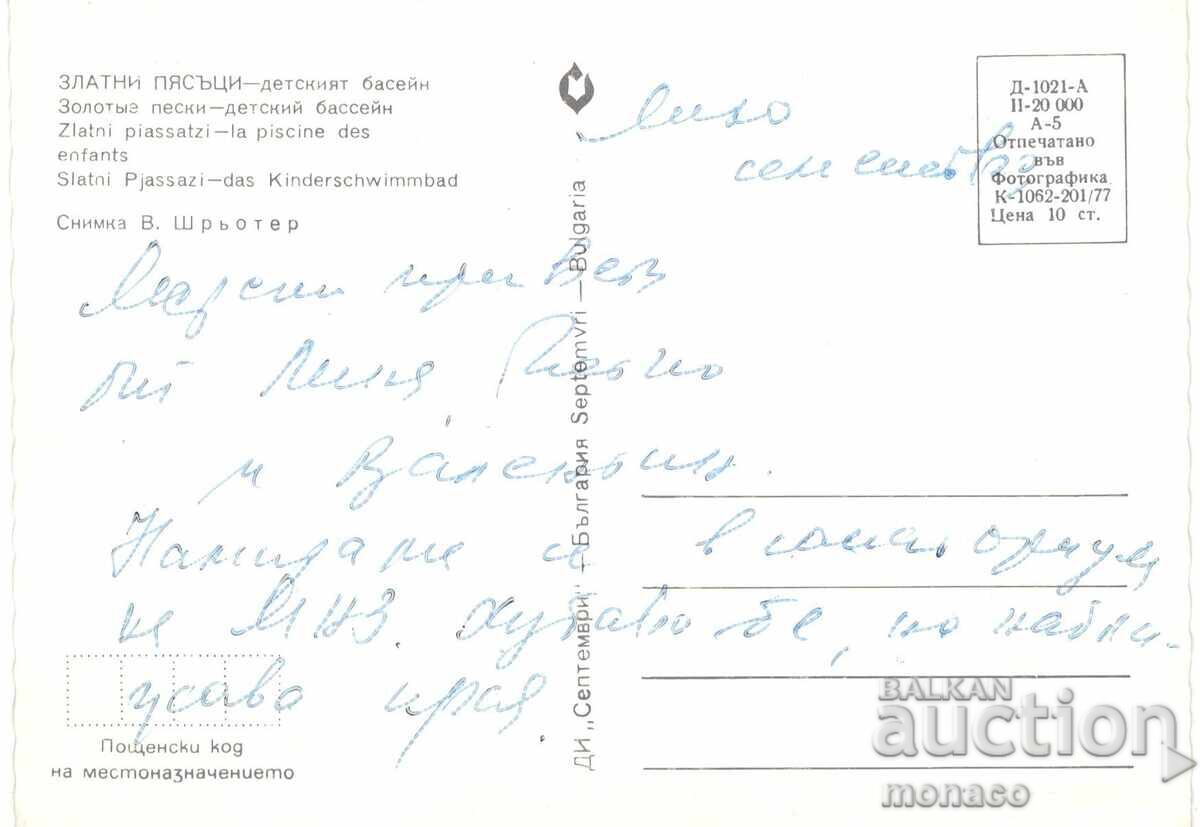 ЗЛАТНИ ПЯСЪЦИ—детският басейн
Золотые пески—детский бассейн
Zlatni piassatzi—la piscine des
enfants
Slatni Pjassazi—das Kinderschwimmbad
Снимка В. Шрьотер
Д-1021-А
II-20 000
А-5
Отпечатано
във
Фотографика
К-1062-201/77
Цена 10 ст.
семейство
Морски привет
от Лили,
и Валентин.
Намираме се в санаториум
на МНЗ. Хубаво бе, но набли-
жава края.
ДИ „Септември" —България Septemvri —Bulgaria
Пощенски код
на местоназначението
BALKAN
auction
monaco